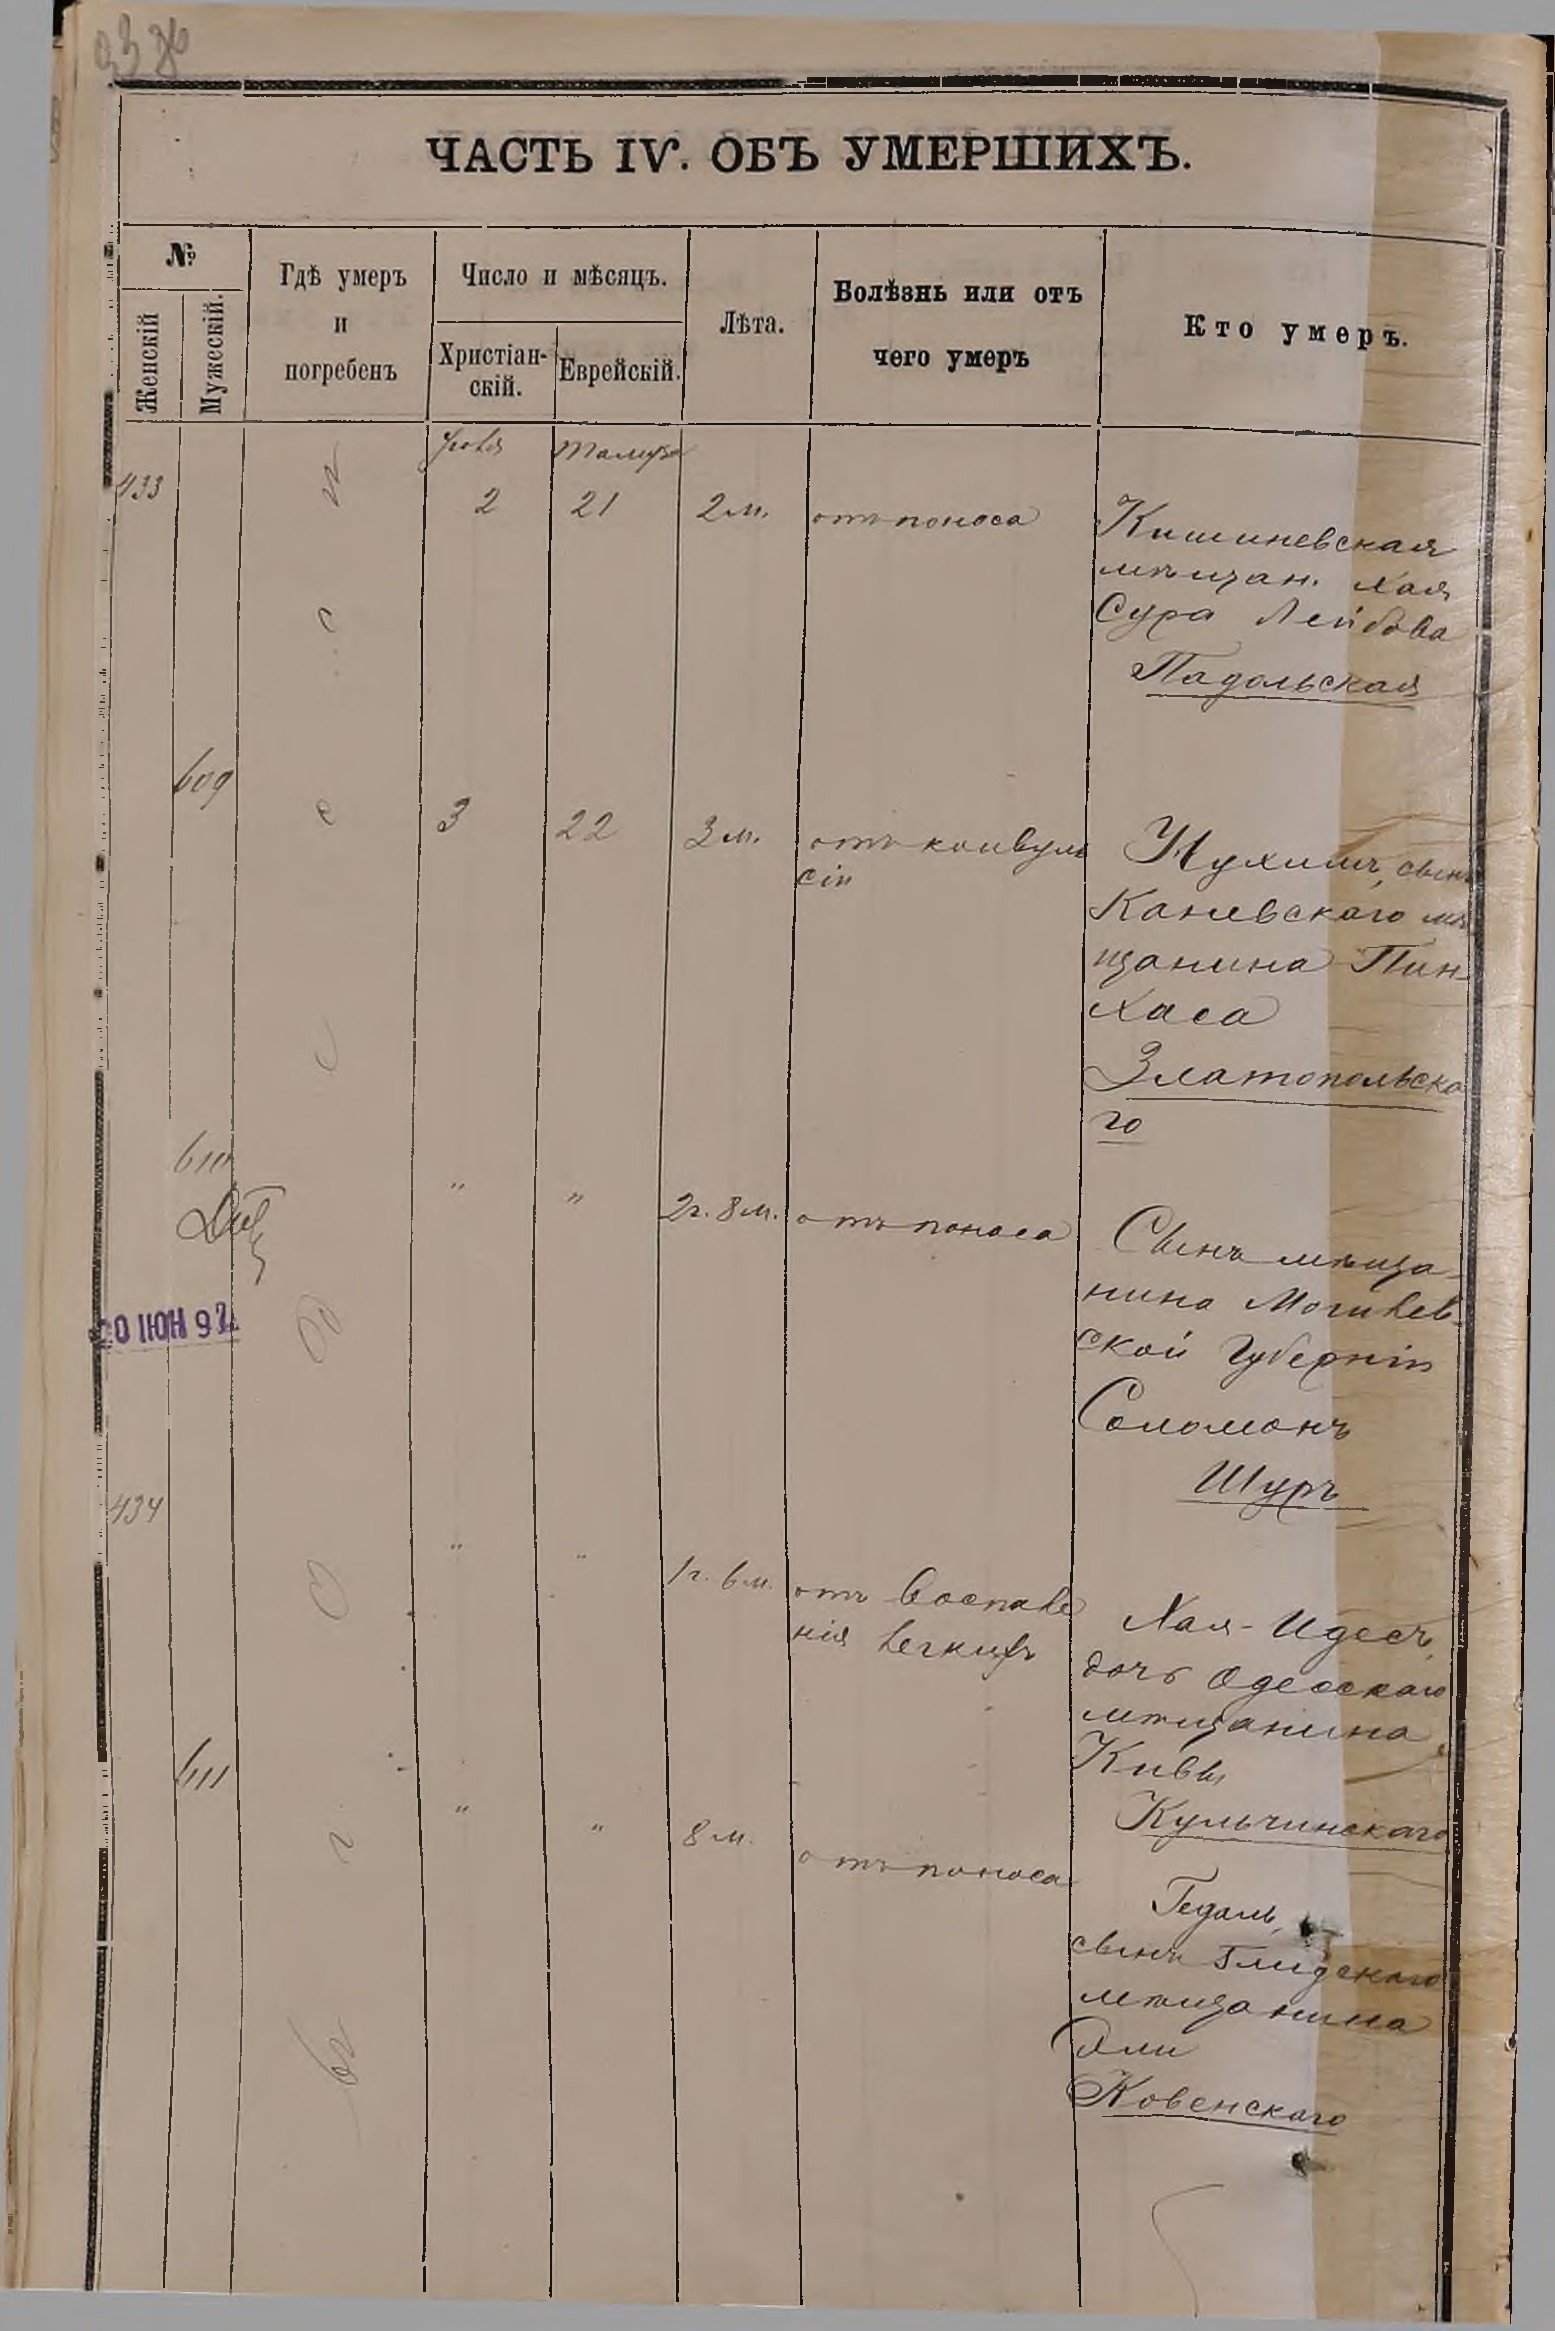 ЧАСТЬ IV. ОБЪ УМЕРШИХЪ.
№
Женскій
Мужескій.
Гдѣ умеръ
и
погребенъ
Число и мѣсяцъ.
Христіан-
скій.
Еврейскій.
Лѣта.
Болѣзнь или отъ
чего умеръ
Кто умеръ.
433
2
21
2 м.
отъ поноса
Кишиневская
мѣщан. Хая
Сура Лейбова
Падольская
609
3
22
3 м.
отъ конвуль
сіи
Нухимъ, сынъ
Каневскаго мѣ
щанина Пин-
хаса
Златопольска
го
610
"
"
2 г. 8 м.
отъ поноса
Сынъ мѣща-
нина Могилев-
ской Губерніи
Соломонъ
Шуръ
20 ІЮН 92
434
"
"
1 г. 6 м.
отъ воспале
нія легкихъ
Хая-Идесъ,
дочь Одесскаго
мѣщанина
Кивы
Кульчинскаго
611
"
"
8 м.
отъ поноса
Гедаль,
сынъ
мѣщанина
Эли
Ковенскаго